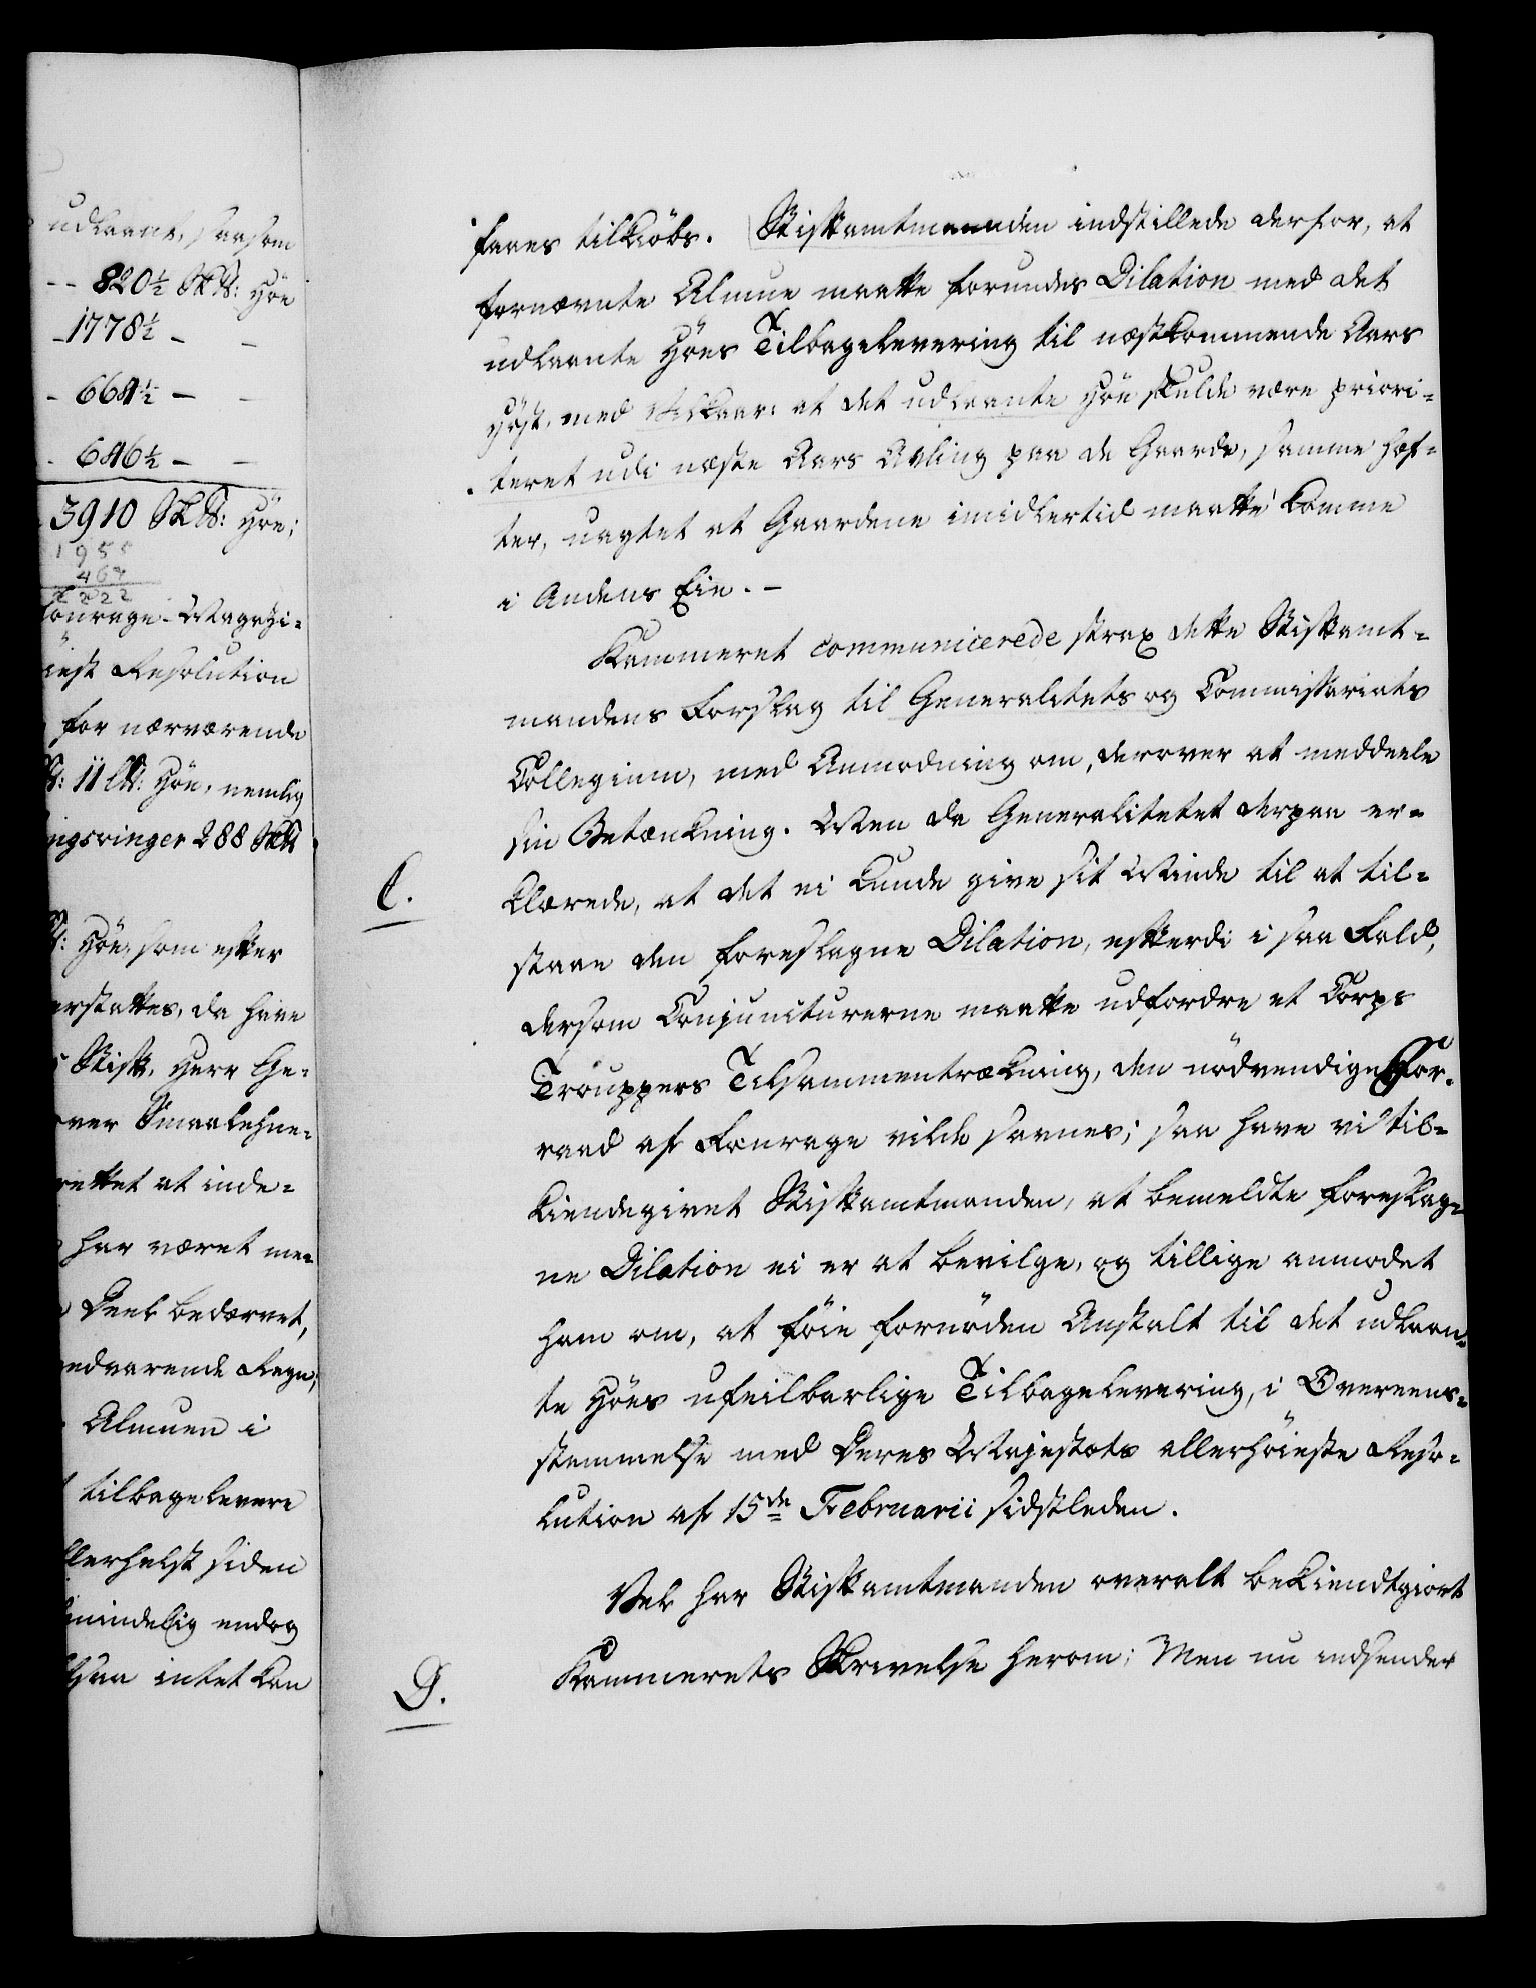 udlaant, saasom
-- 820½ Sk℔: Höe
- 1778½ - -
- 664½ - -
- 646½ - -
3910 Sk℔: Höe;
1955
467
2222
Fourage-Magazi-
iest Resolution
for nærværende
℔: 11 L℔: Höe, nemlig
ngsvinger 288 Sk℔
℔: Höe, som efter
erstattes, da have
Stift, Herr Ge-
over Smaalehne-
rettet at inde-
har været me-
Deel bedærvet,
vedvarende Regn;
Almuen i
tilbagelevere
allerhelst siden
mindelig endog
saa intet kan
faaes tilkiöbs. Stiftamtmanden indstillede derfor, at
fornævnte Almue maatte forundes Dilation med det
udlaante Höes Tilbagelevering til næstkommende Aars
Höst, med Vilkaar: at det udlaante Höe skulde være priori-
teret udi næste Aars Avling paa de Gaarde, samme hef-
ter, uagtet at Gaardene imidlertid maatte komme
i Andens Eie. -
Kammeret communicerede strax dette Stiftamt-
mandens Forslag til Generalitets og Commissariats
Collegium, med Anmodning om, derover at meddeele
sin Betænkning. Men da Generalitetet derpaa er-
C.
klærede, at det ei kunde give sit Minde til at til-
staae den foreslagne Dilation, efterdi i saa Fald,
dersom Conjuncturerne maatte udfordre et Corps
Trouppers Tilsammentrækning, den nödvendige For-
raad af Fourage vilde savnes; saa have vi til-
kiendegivet Stiftamtmanden, at bemeldte foreslag-
ne Dilation ei er at bevilge, og tillige anmodet
ham om, at föie fornöden Anstalt til det udlaan-
te Höes ufeilbarlige Tilbagelevering, i Overeens-
stemmelse med Deres Majestæts allerhöieste Reso-
lution af 15de Februarii sidstleden.
Vel har Stiftamtmanden overalt bekiendtgiort
D.
Kammerets Skrivelse herom; Men nu indsender